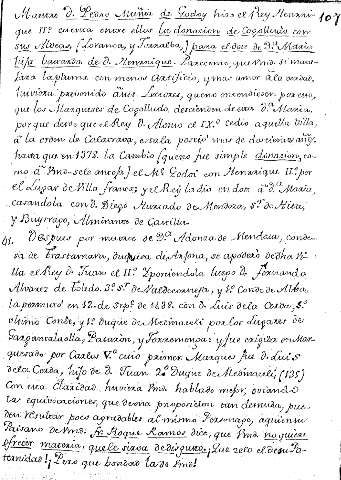 107
Maestre D. Pedro Muñiz de Godoy hizo el Rey Henrri-
que IIº cuenta entre ellos la donasion de Cogolludo con
sus Aldeas (Loranca, y Torralba) para el dote de Dª Maria
hija bastarda de D. Henrrique. Pareceme, que Vmd. si mane-
jara la pluma con menos artificio, y mas amor a la verdad,
huviera prevenido a sus Lectores, que no entendiesen por esto,
que los Marqueses de Cogolludo descienden de esta Dª Maria,
por que desde que el Rey D. Alonso el IXº cedio aquella Villa,
à la orden de Calatrava, esta la poseyò mas de doscientos años,
hasta que en 1378. la cambio (que no fue simple donasion, co-
mo à Vmd. se lo antoja) el Mº Godoi con Henrrique IIº por
el Lugar de Villa franca; y el Rey la dio en dote à Dª Maria,
casandola con D. Diego Hurtado de Mendoza, Sº de Hita,
y Buytrago, Almirante de Castilla.
61. Despues por muerte de Dª Aldonza de Mendoza, conde-
sa de Trastamara, duquesa de Arjona, se apoderò de dha Vi-
lla el Rey D. Juan el IIº y poseiendola luego D. Fernando
Alvarez de Toledo, 3º Sº de Valdecorneja, y 1º Conde de Alba,
la permutò en 12. de Sepº de 1438. con D. Luis de la Cerda, 3º
Conde, y 1º duque de Medinaceli por los Lugares de
Garganta la olla, Pasaron, y Torremenga: y fue erigida en Mar-
quesado por Carlos Vº cuio primer Marques fue D. Luis
de la Cerda, hijo de D. Juan 2º Duque de Medinaceli, (135)
Con esta claridad huviera Vmd. hablado mejor, evitando
las equivocaciones, que de una proposicion tan desnuda, pue-
den resultar poco agradables al mismo Personage, a quien su
Paisano de Vmd. Fr. Roque Ramos dice, que Vmd. no quiere
ofrecer materia, que le sirva de disgusto. Que zelo el de su Pa-
ternidad! Pero que bondad la de Vmd!